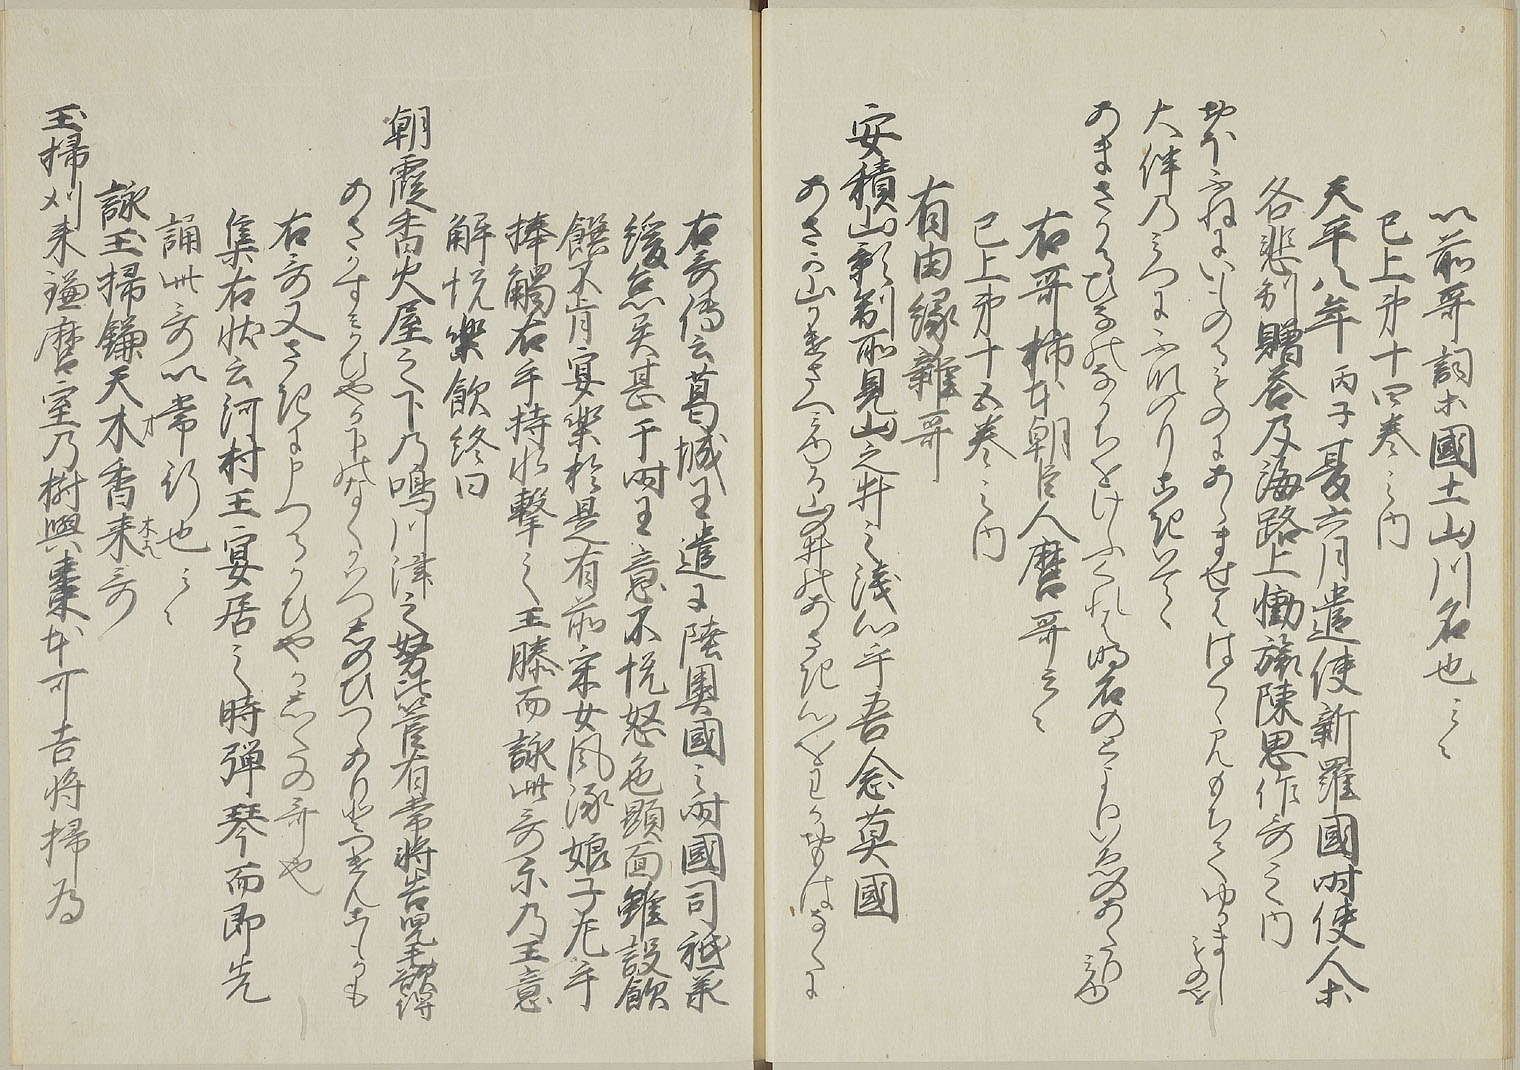 以前哥詞等國土山川名也云々
已上第十四巻之内
天平八年丙子夏六月遣使新羅國時使人等
各悲別贈答及海路上慟旅陳思作哥之内
おほふねにいものるものにあらませははくゝみもちてゆかましものを
大伴乃みつにふなのりこきいてゝ
あまさかるひなのなかちをこひくれは明石のとよりいゑのあたりみゆ
右哥柿本朝臣人麿哥云々
已上第十五巻之内
有由縁雜哥
安積山影副所見山之井之浅心乎吾念莫國
あさか山かけさへみゆる山の井のあさき心をわかおもはなくに
右哥傳云葛城王遣于陸奥國之時國司祗承
緩怠異甚于時王意不悦怒色顕面雖設飲
饌不肯宴樂於是有前采女風流娘子左手
捧觴右手持水撃之王膝而詠此哥尓乃王意
解悦樂飲終日
朝霞香火屋之下乃鳴川津之努比管有常将告児毛欲得
あさかすみかひやか下になくかはつしのひつゝありとつけんこもかも
右哥又さきに申つるかひやかしたの哥也
集右状云河村王宴居之時弾琴而即先
誦此哥以常行也云々
詠玉掃鎌天木香来哥
玉掃刈来鎌麿室乃樹與棗本可吉将掃為